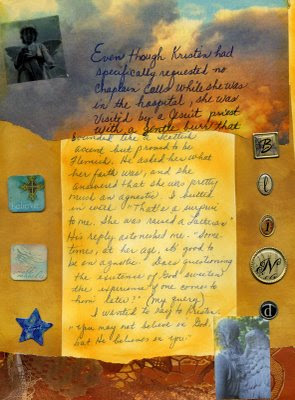 Even though Kristen had
specifically requested no
Chaplain Calls while she was
in the hospital, she was
visited by a Jesuit priest
with a gentle burr that
sounded like a Scottish
accent but proud to be
Flemish. He asked her what
her faith was, and she
answered that she was pretty
much an agnostic. I butted
in with "That's a surprise
to me. She was raised a Lutheran"
His reply astonished me - "Some-
times, at her age, it's good to
be an agnostic" Does questioning
the existence of God sweeten
the experience if one comes to
him later? (my query)
I wanted to say to Kristen
"You may not believe in God,
but He believes in you"
B
l
i
N
d